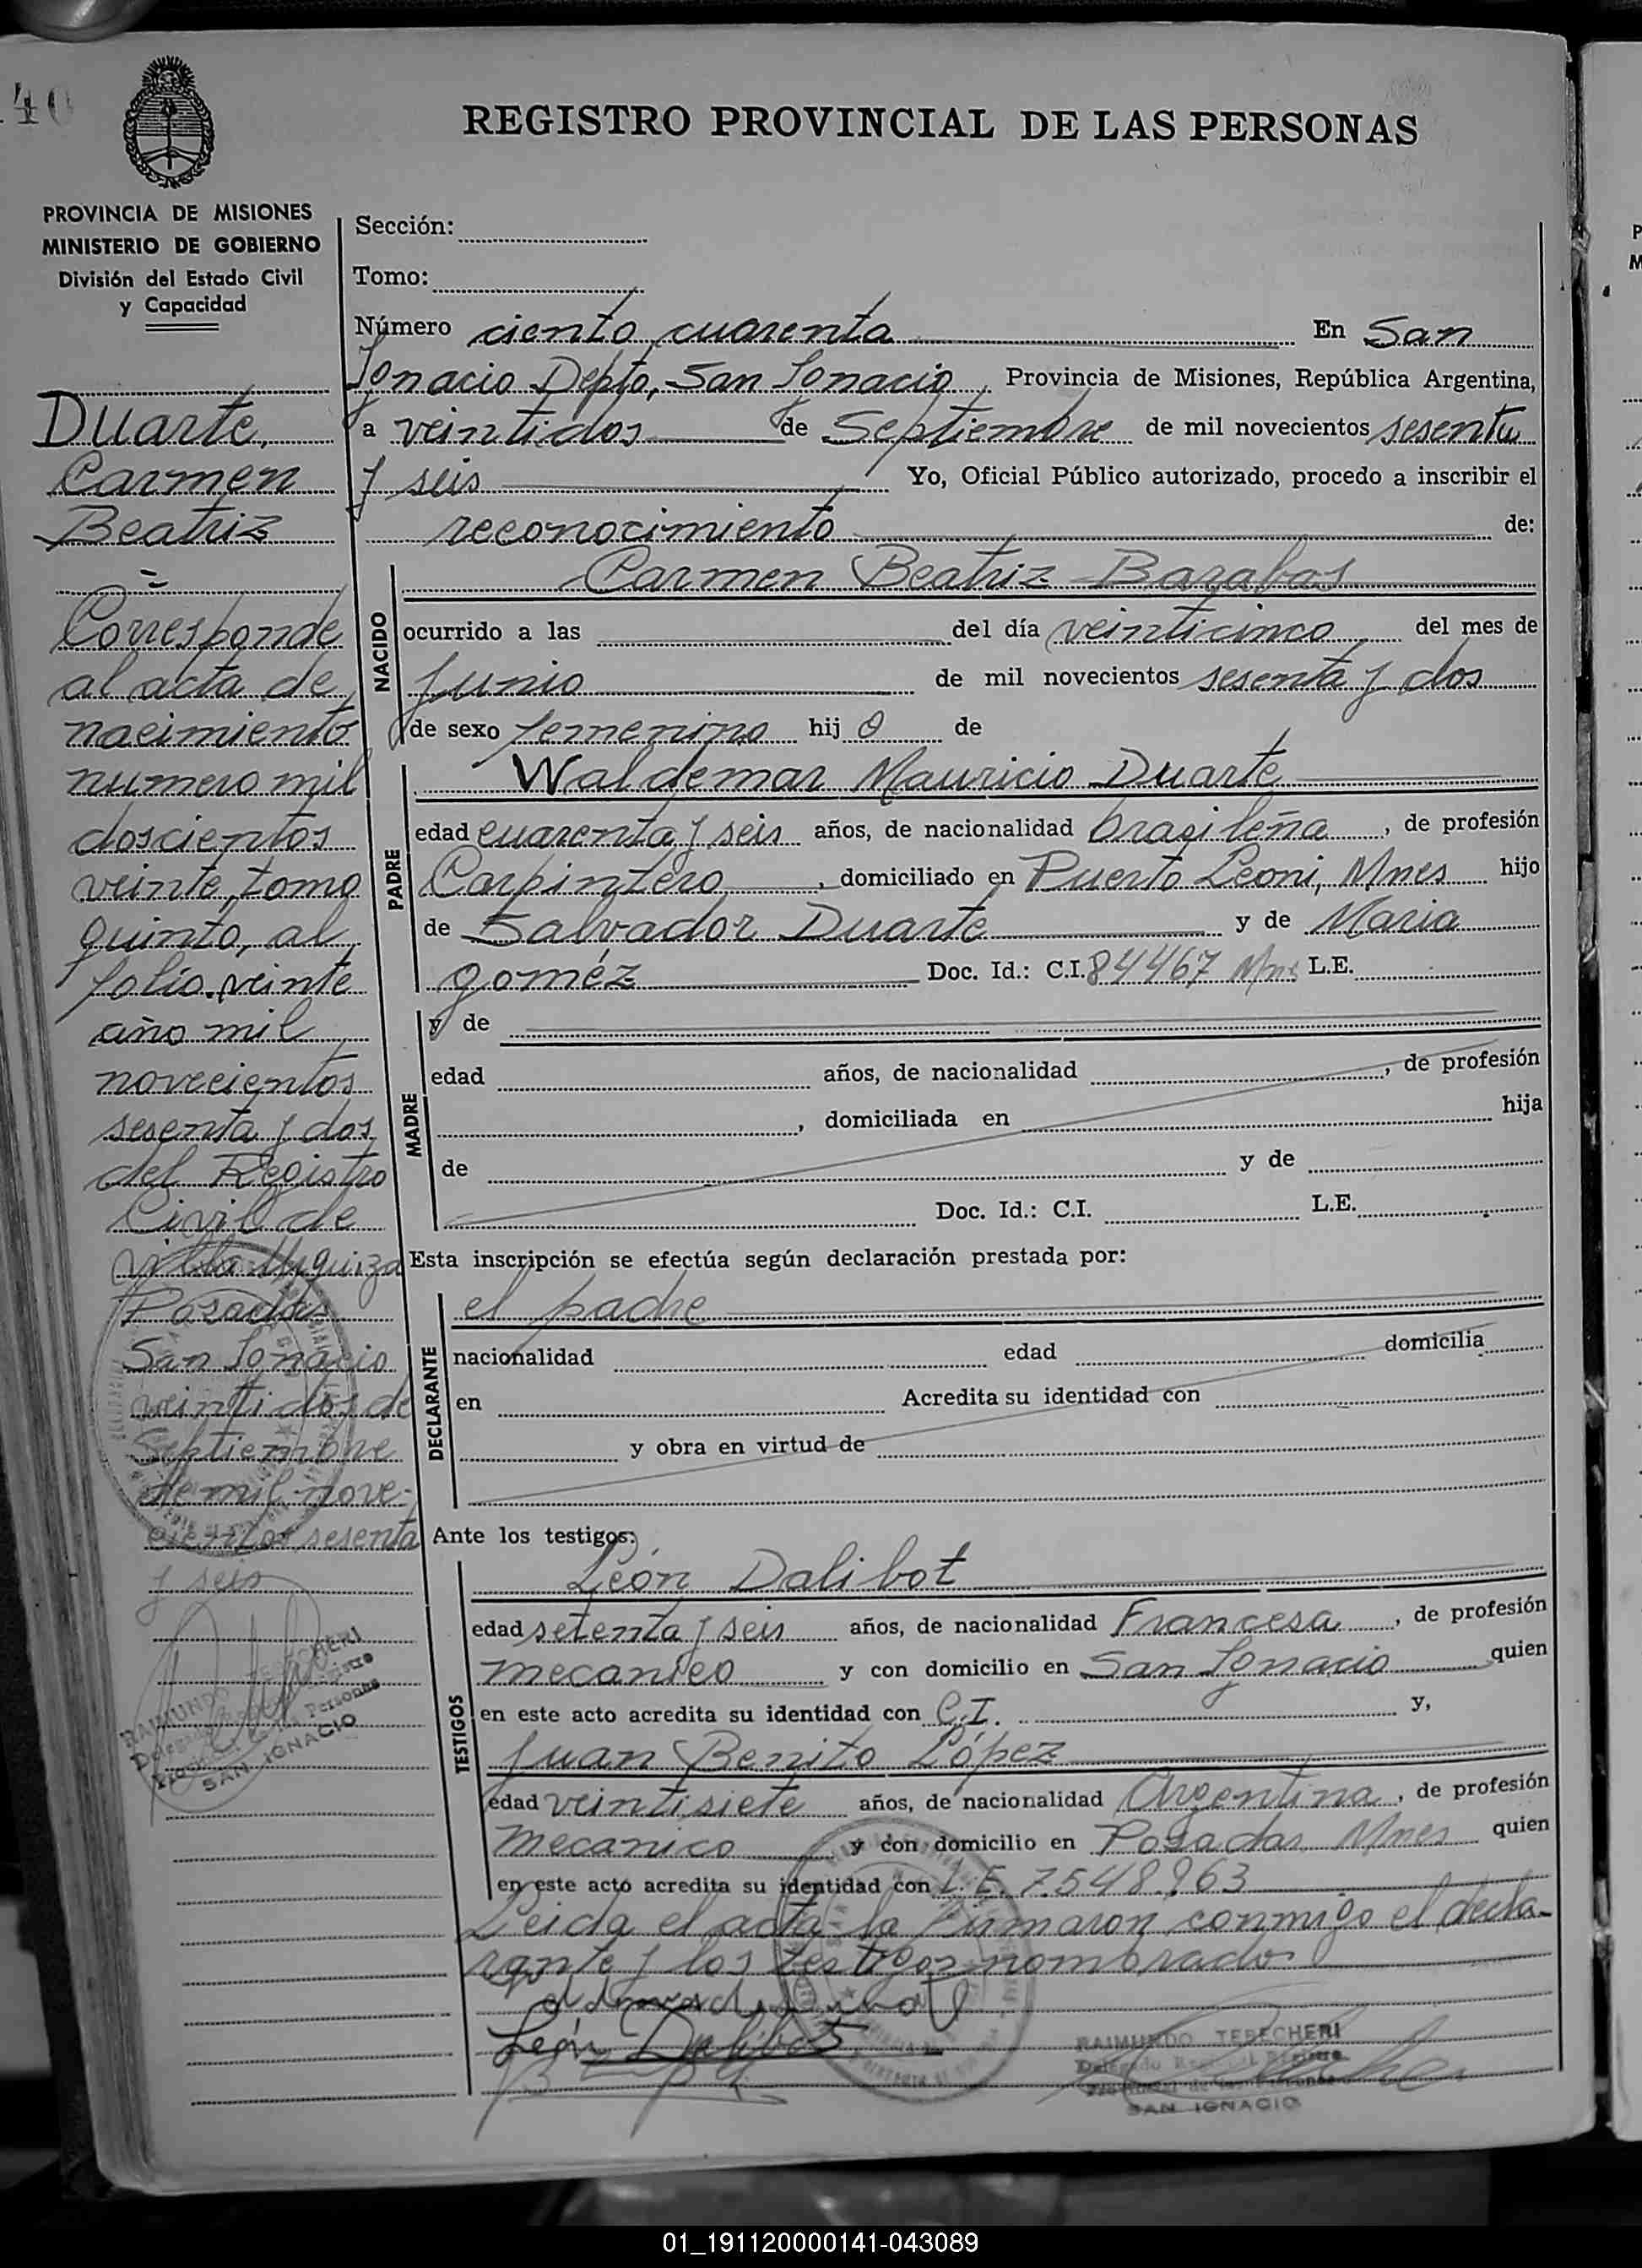 140
REGISTRO PROVINCIAL DE LAS PERSONAS
PROVINCIA DE MISIONES
MINISTERIO DE GOBIERNO
División del Estado Civil
y Capacidad
Duarte,
Carmen
Beatriz
Corresponde
al acta de
nacimiento
numero mil
doscientos
veinte, tomo
quinto, al
folio veinte
año mil
novecientos
sesenta y dos
del Registro
Civil de
Villa Urquiza
Posadas
San Ignacio
veintidos de
Septiembre
de mil nove-
cientos sesenta
y seis
RAIMUNDO TERECHERI
SAN IGNACIO
Sección:
Tomo:
Número ciento cuarenta En San
Ignacio Depto, San Ignacio, Provincia de Misiones, República Argentina,
a veintidos de Septiembre de mil novecientos sesenta
y seis Yo, Oficial Público autorizado, procedo a inscribir el
reconocimiento de:
NACIDO
Carmen Beatriz Barabas
ocurrido a las del día veinticinco del mes de
Junio de mil novecientos sesenta y dos
de sexo femenino hij a de
PADRE
Waldemar Mauricio Duarte
edad cuarenta y seis años, de nacionalidad brasileña, de profesión
Carpintero, domiciliado en Puerto Leoni, Mnes hijo
de Salvador Duarte y de Maria
goméz Doc. Id.: C.I. 84467 Mns L.E.
MADRE
y de
edad años, de nacionalidad , de profesión
, domiciliada en hija
de y de
Doc. Id.: C.I. L.E.
Esta inscripción se efectúa según declaración prestada por:
DECLARANTE
el padre
nacionalidad edad domicilia
en Acredita su identidad con
y obra en virtud de
Ante los testigos:
TESTIGOS
León Dalibot
edad setenta y seis años, de nacionalidad Francesa, de profesión
mecanico y con domicilio en San Ignacio quien
en este acto acredita su identidad con C.I. y,
Juan Benito López
edad veintisiete años, de nacionalidad Argentina, de profesión
mecanico y con domicilio en Posadas Mnes quien
en este acto acredita su identidad con L.E. 7.548.963
Leida el acta la firmaron conmigo el decla-
rante y los testigos nombrados
León Dalibot
RAIMUNDO TERECHERI
SAN IGNACIO
01_191120000141-043089